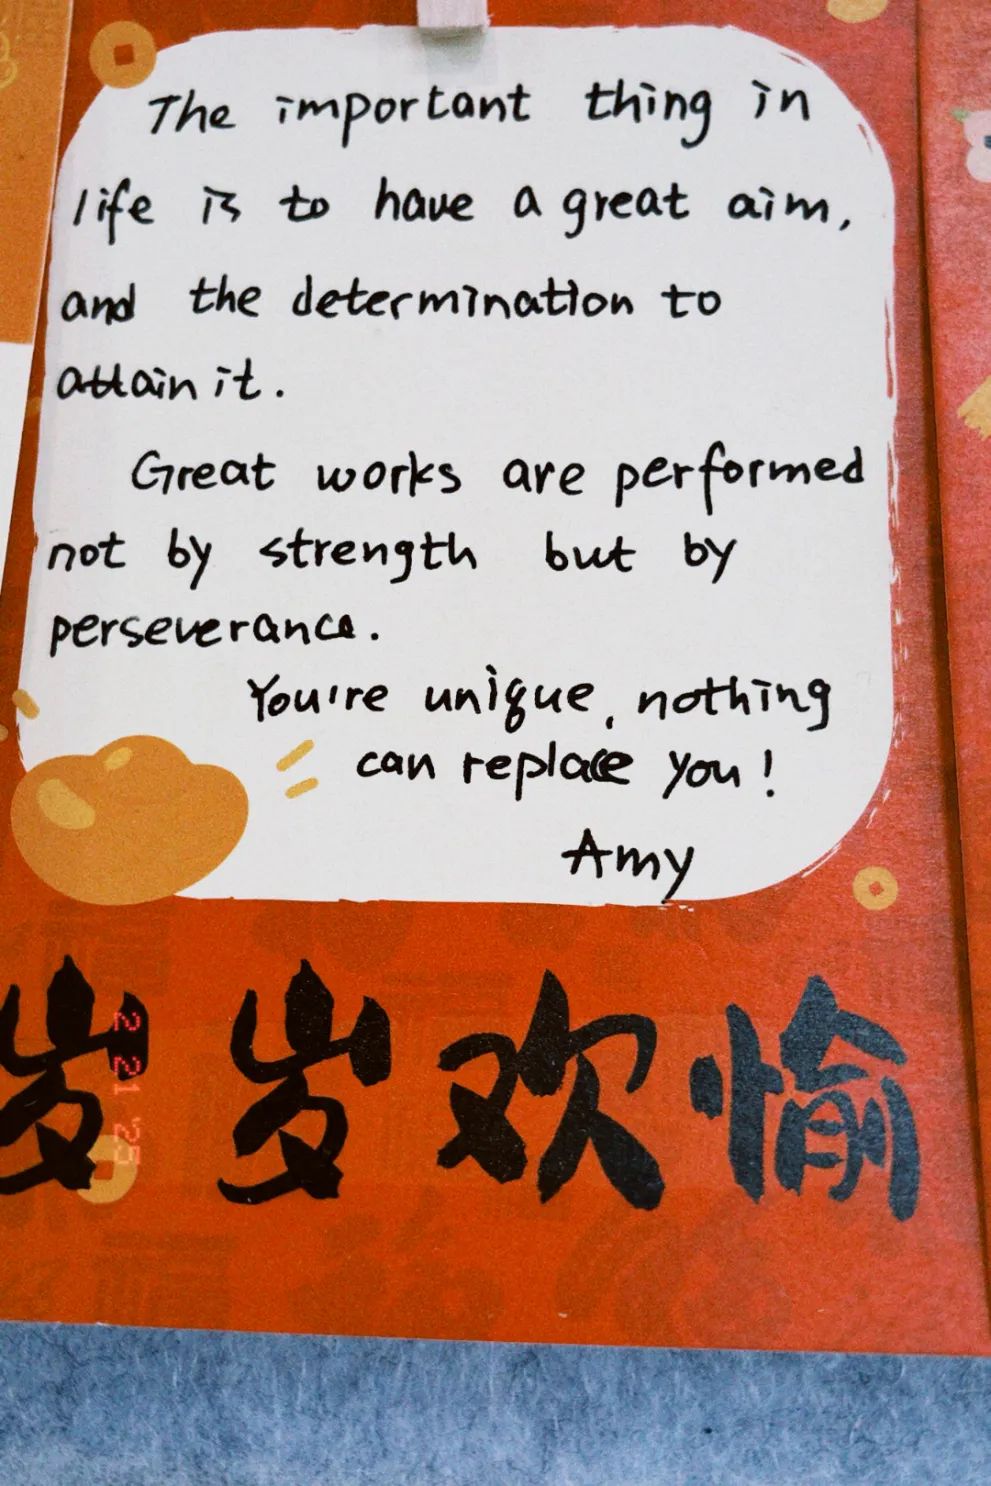 The important thing in
life is to have a great aim,
and the determination to
attain it.
Great works are performed
not by strength but by
perseverance.
You're unique, nothing
can replace you!
Amy
岁岁欢愉
2 21 '25